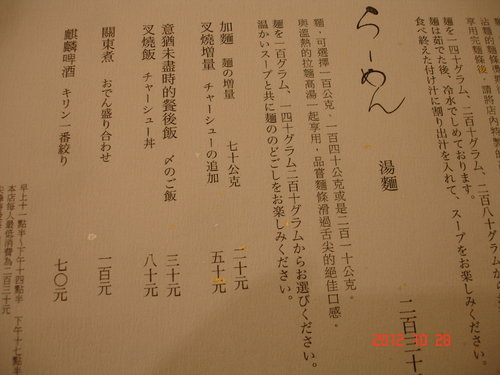 沾麵的麵條
享用完麵條後，請將店內
麵を一四〇グラム、二百十グラム、二百八十グラムから
麵は茹でた後、冷水でしめております。
食べ終えた付け汁に割り出汁を入れて、スープをお楽しみください。
らーめん
湯麵
二百三十
麵，可選擇一百公克、一百四十公克或是二百一十公克。
與溫熱的拉麵高湯一起享用，品嘗麵條滑過舌尖的絕佳口感。
麵を一百グラム、一四十グラム二百十グラムからお選びください。
温かいスープと共に麵ののどごしをお楽しみください。
加麵 麵の増量 七十公克 二十元
叉燒增量 チャーシューの追加 五十元
意猶未盡時的餐後飯 〆のご飯 三十元
叉燒飯 チャーシュー丼 八十元
關東煮 おでん盛り合わせ 一百元
麒麟啤酒 キリン一番絞り 七〇元
早上十一點半~下午十四點半 下午十七點半
本店每人最低消費為二百三十元
2012 10 28